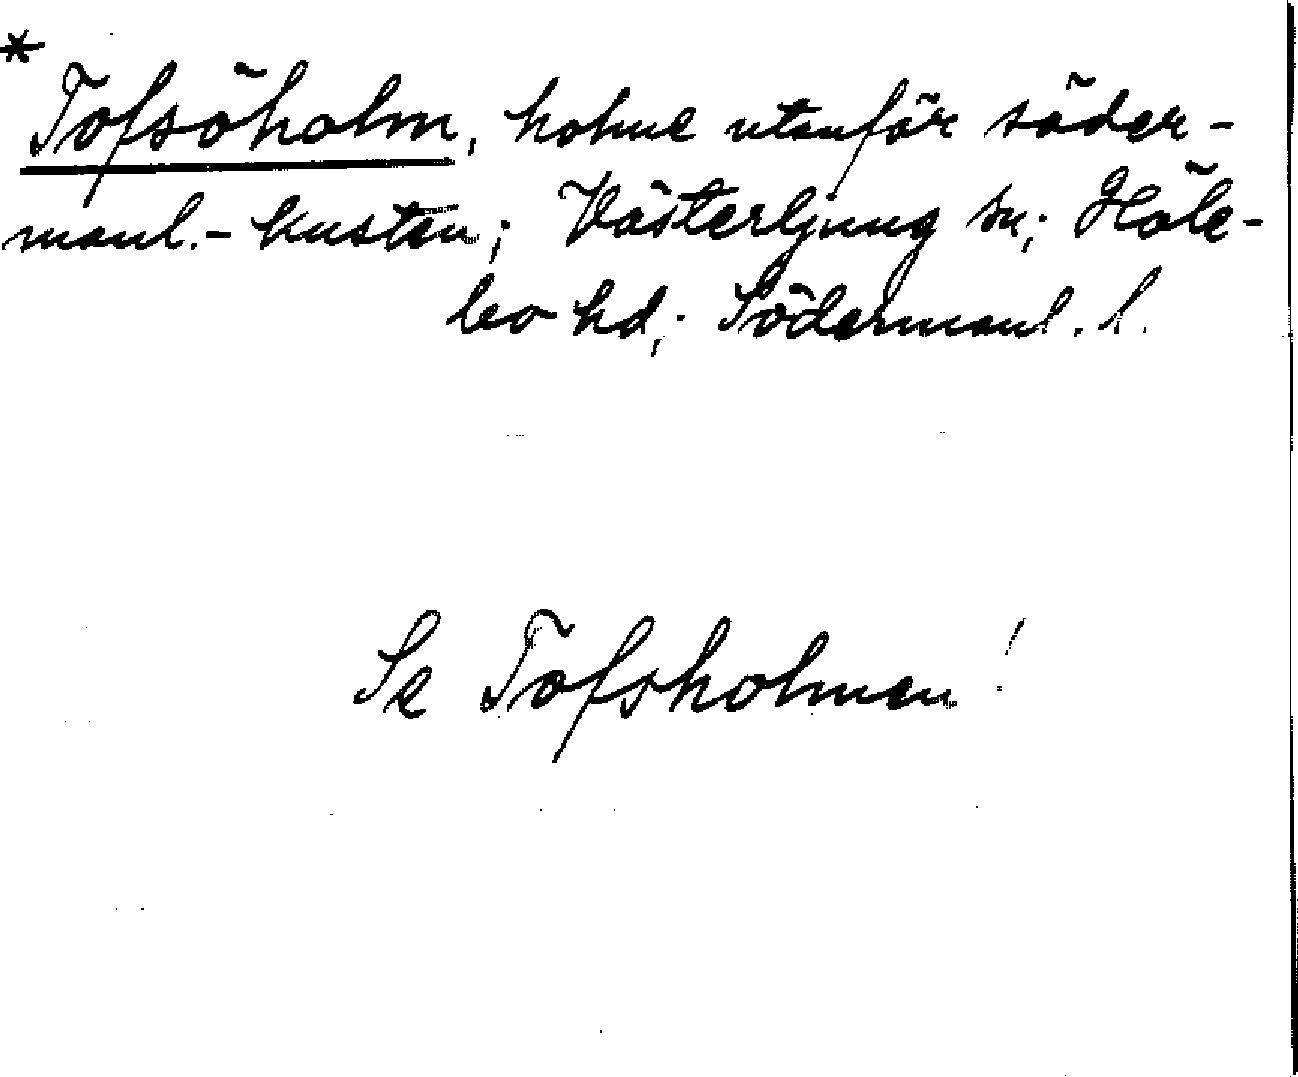 *
Tofsöholm, holme utanför söder-
manl.-kusten; Västerljung sn; Höle-
bo hd; Södermanl. l.
Se Tofsholmen!